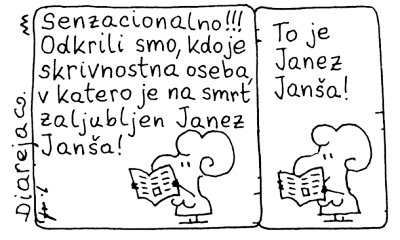 Senzacionalno!!!
Odkrili smo, kdo je
skrivnostna oseba,
v katero je na smrt
zaljubljen Janez
Janša!
To je
Janez
Janša!
Diareja Co.